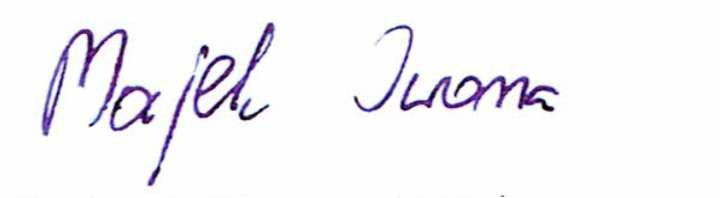 Majek Iwona